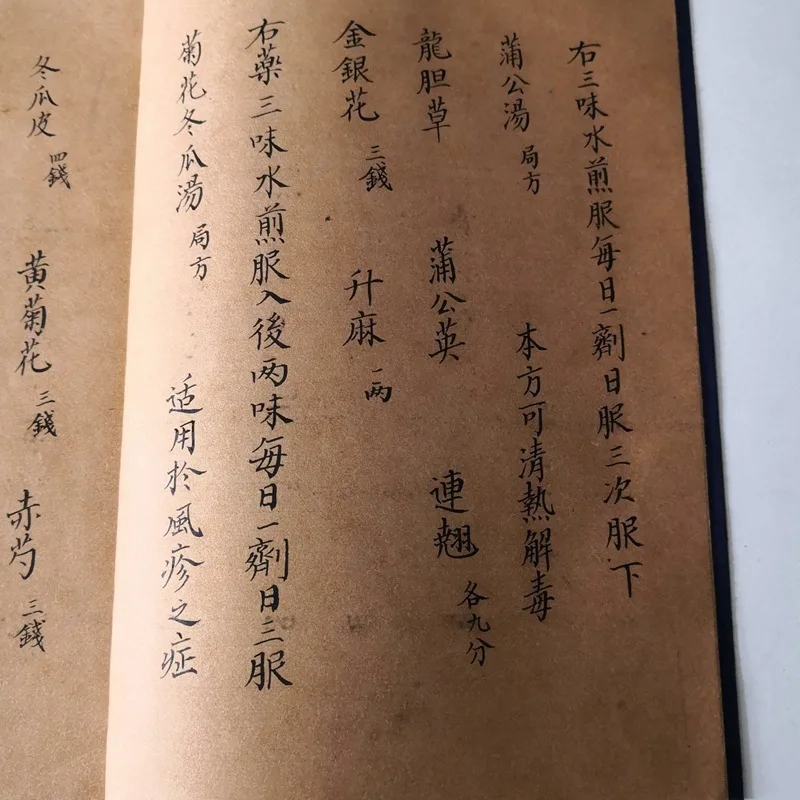 右三味水煎服每日一劑日服三次服下
蒲公湯 局方 本方可清熱解毒
龍胆草 蒲公英 連翹 各九分
金銀花 三錢 升麻 一两
右藥三味水煎服入後两味每日一劑日三服
菊花冬瓜湯 局方 适用於風疹之症
冬瓜皮 四錢 黄菊花 三錢 赤芍 三錢